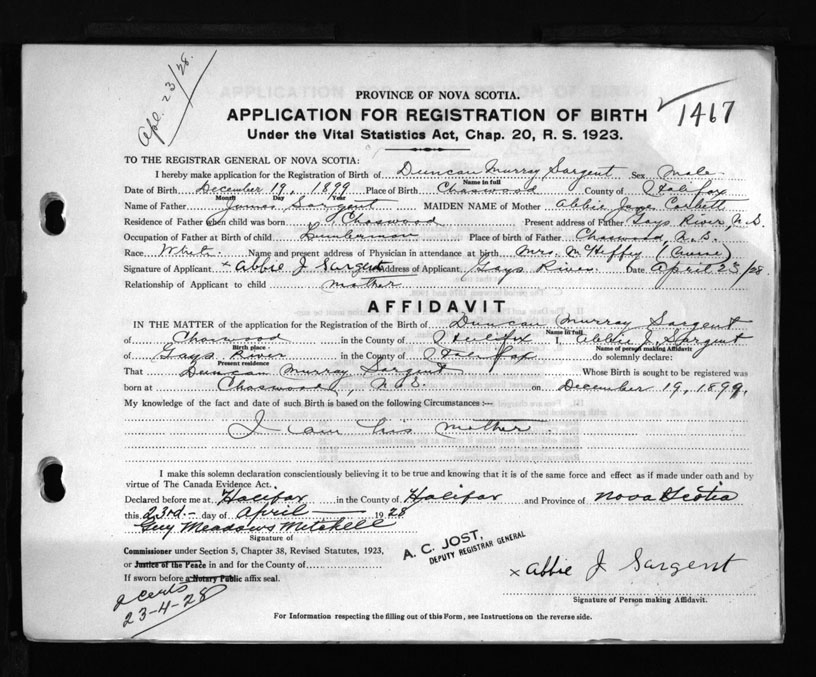 Apl. 23/28.
PROVINCE OF NOVA SCOTIA.
APPLICATION FOR REGISTRATION OF BIRTH
1467
Under the Vital Statistics Act, Chap. 20, R. S. 1923.
TO THE REGISTRAR GENERAL OF NOVA SCOTIA:
I hereby make application for the Registration of Birth of Duncan Murray Sargent Sex Male
Name in full
Date of Birth December 19, 1899 Place of Birth Chaswood County of Halifax
Month Day Year
Name of Father James Sargent MAIDEN NAME of Mother Abbie Jane Corbett
Residence of Father when child was born Chaswood Present address of Father Gays River, N.S.
Occupation of Father at Birth of child Lumberman Place of birth of Father Chaswood N.S.
Race White Name and present address of Physician in attendance at birth Mrs. McHeffy (nurse)
Signature of Applicant x Abbie J Sargent Address of Applicant Gays River Date April 23/28
Relationship of Applicant to child mother
AFFIDAVIT
IN THE MATTER of the application for the Registration of the Birth of Duncan Murray Sargent
Name in full
of Chaswood in the County of Halifax I, Abbie J. Sargent
Birth place Name of person making Affidavit
of Gays River in the County of Halifax do solemnly declare:
Present residence
That Duncan Murray Sargent Whose Birth is sought to be registered was
born at Chaswood, N.S. on December 19, 1899.
My knowledge of the fact and date of such Birth is based on the following Circumstances :—
I am his mother.
I make this solemn declaration conscientiously believing it to be true and knowing that it is of the same force and effect as if made under oath and by
virtue of The Canada Evidence Act.
Declared before me at Halifax in the County of Halifax and Province of Nova Scotia
this 23rd. day of April 1928
Guy Meadows Mitchell
Signature of
Commissioner under Section 5, Chapter 38, Revised Statutes, 1923,
or Justice of the Peace in and for the County of
If sworn before a Notary Public affix seal.
A. C. JOST,
DEPUTY REGISTRAR GENERAL
x Abbie J Sargent
Signature of Person making Affidavit.
2 certs
23-4-28
For Information respecting the filling out of this Form, see Instructions on the reverse side.